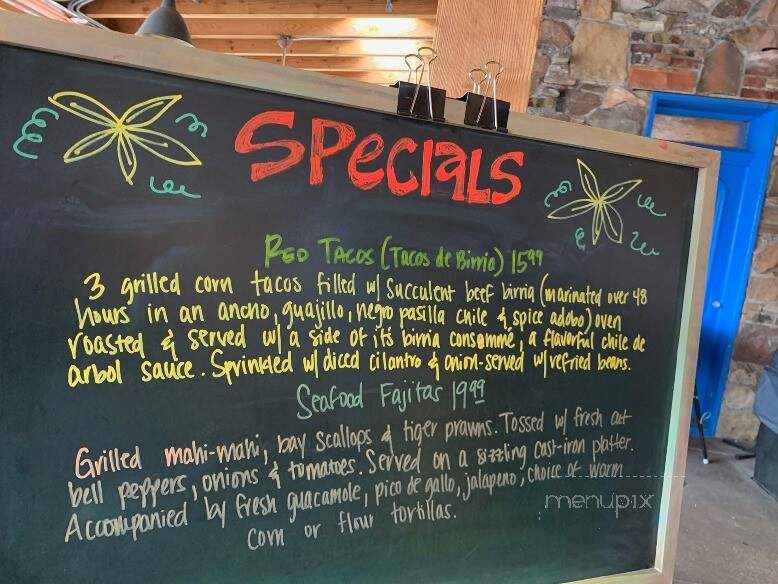 SPECIALS
RED TACOS (TACOS de Birria) 15⁹⁹
3 grilled corn tacos filled w/ succulent beef birria (marinated over 48
hours in an ancho, guajillo, negro pasilla chile & spice adobo) oven
roasted & served w/ a side of its birria consommé, a flavorful chile de
arbol sauce. Sprinkled w/ diced cilantro & onion-served w/ refried beans.
Seafood Fajitas 19⁹⁹
Grilled mahi-mahi, bay scallops & tiger prawns. Tossed w/ fresh cut
bell peppers, onions & tomatoes. Served on a sizzling cast-iron platter.
Accompanied by fresh guacamole, pico de gallo, jalapeno, choice of warm
corn or flour tortillas.
menupix